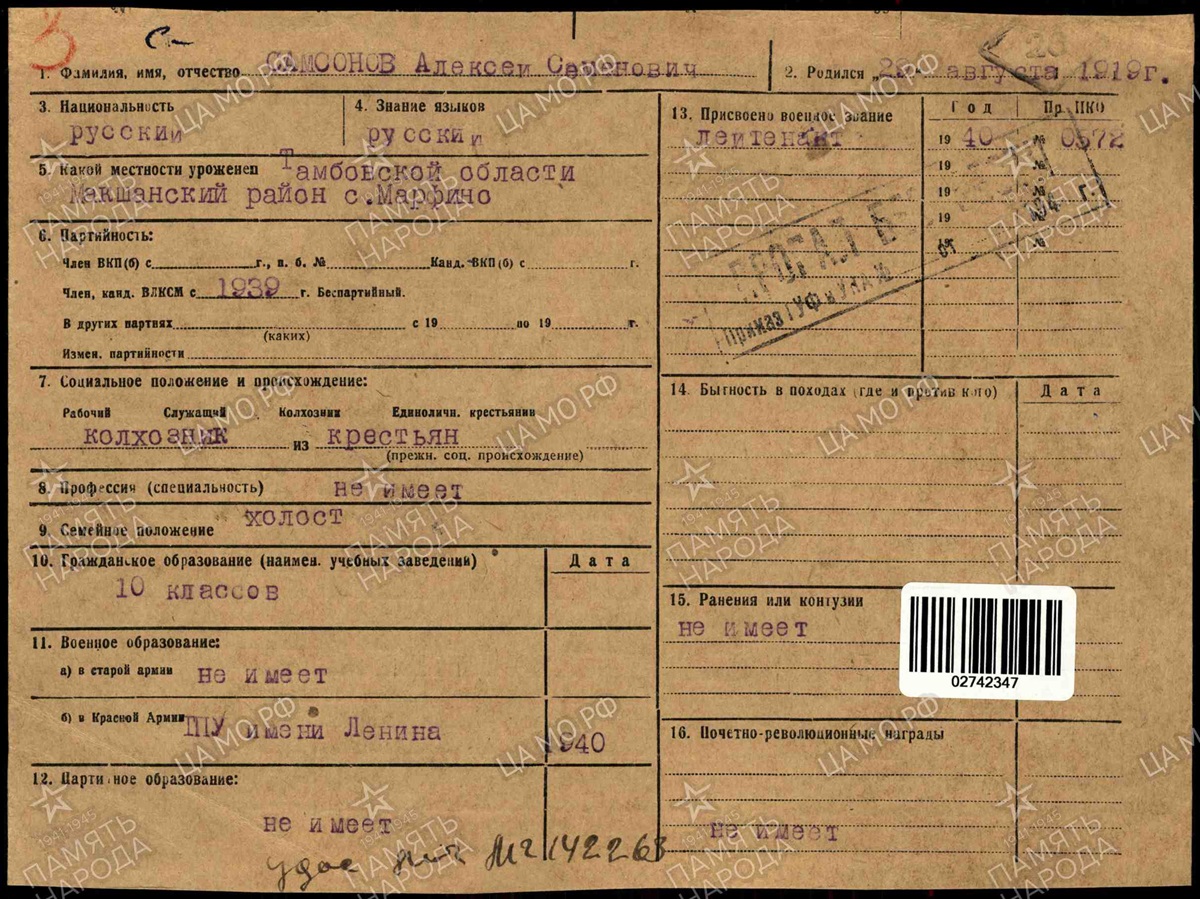 1. Фамилия, имя, отчество САМСОНОВ Алексеи Семенович
2. Родился „28" августа 1919г.
3. Национальность
русскии
4. Знание языков
русскии
5. Какой местности уроженец Тамбовской области
Макшанский район с.Марфино
6. Партийность:
Член ВКП(б) с г., п. б. № Канд. ВКП(б) с г.
Член, канд. ВЛКСМ с 1939 г. Беспартийный.
В других партиях с 19 по 19 г.
(каких)
Измен. партийности
7. Социальное положение и происхождение:
Рабочий Служащий Колхозник Единоличн. крестьянин
колхозник из крестьян
(прежн. соц. происхождение)
8. Профессия (специальность) не имеет
9. Семейное положение холост
10. Гражданское образование (наимен. учебных заведений) Дата
10 классов
11. Военное образование:
а) в старой армии не имеет
б) в Красной Армии ПУ имени Ленина 1940
12. Партийное образование:
не имеет
удос № 142263
13. Присвоено военное звание Год Пр. НКО
леитенант 19 40 № 0572
19 №
19 №
19 №
19 №
ПРОПАЛ Б
Приказ ГУФ и УКА №
от 194 г.
14. Бытность в походах (где и против кого) Дата
15. Ранения или контузии
не имеет
02742347
16. Почетно-революционные награды
не имеет
ПАМЯТЬ НАРОДА
1941-1945
ЦАМО.РФ